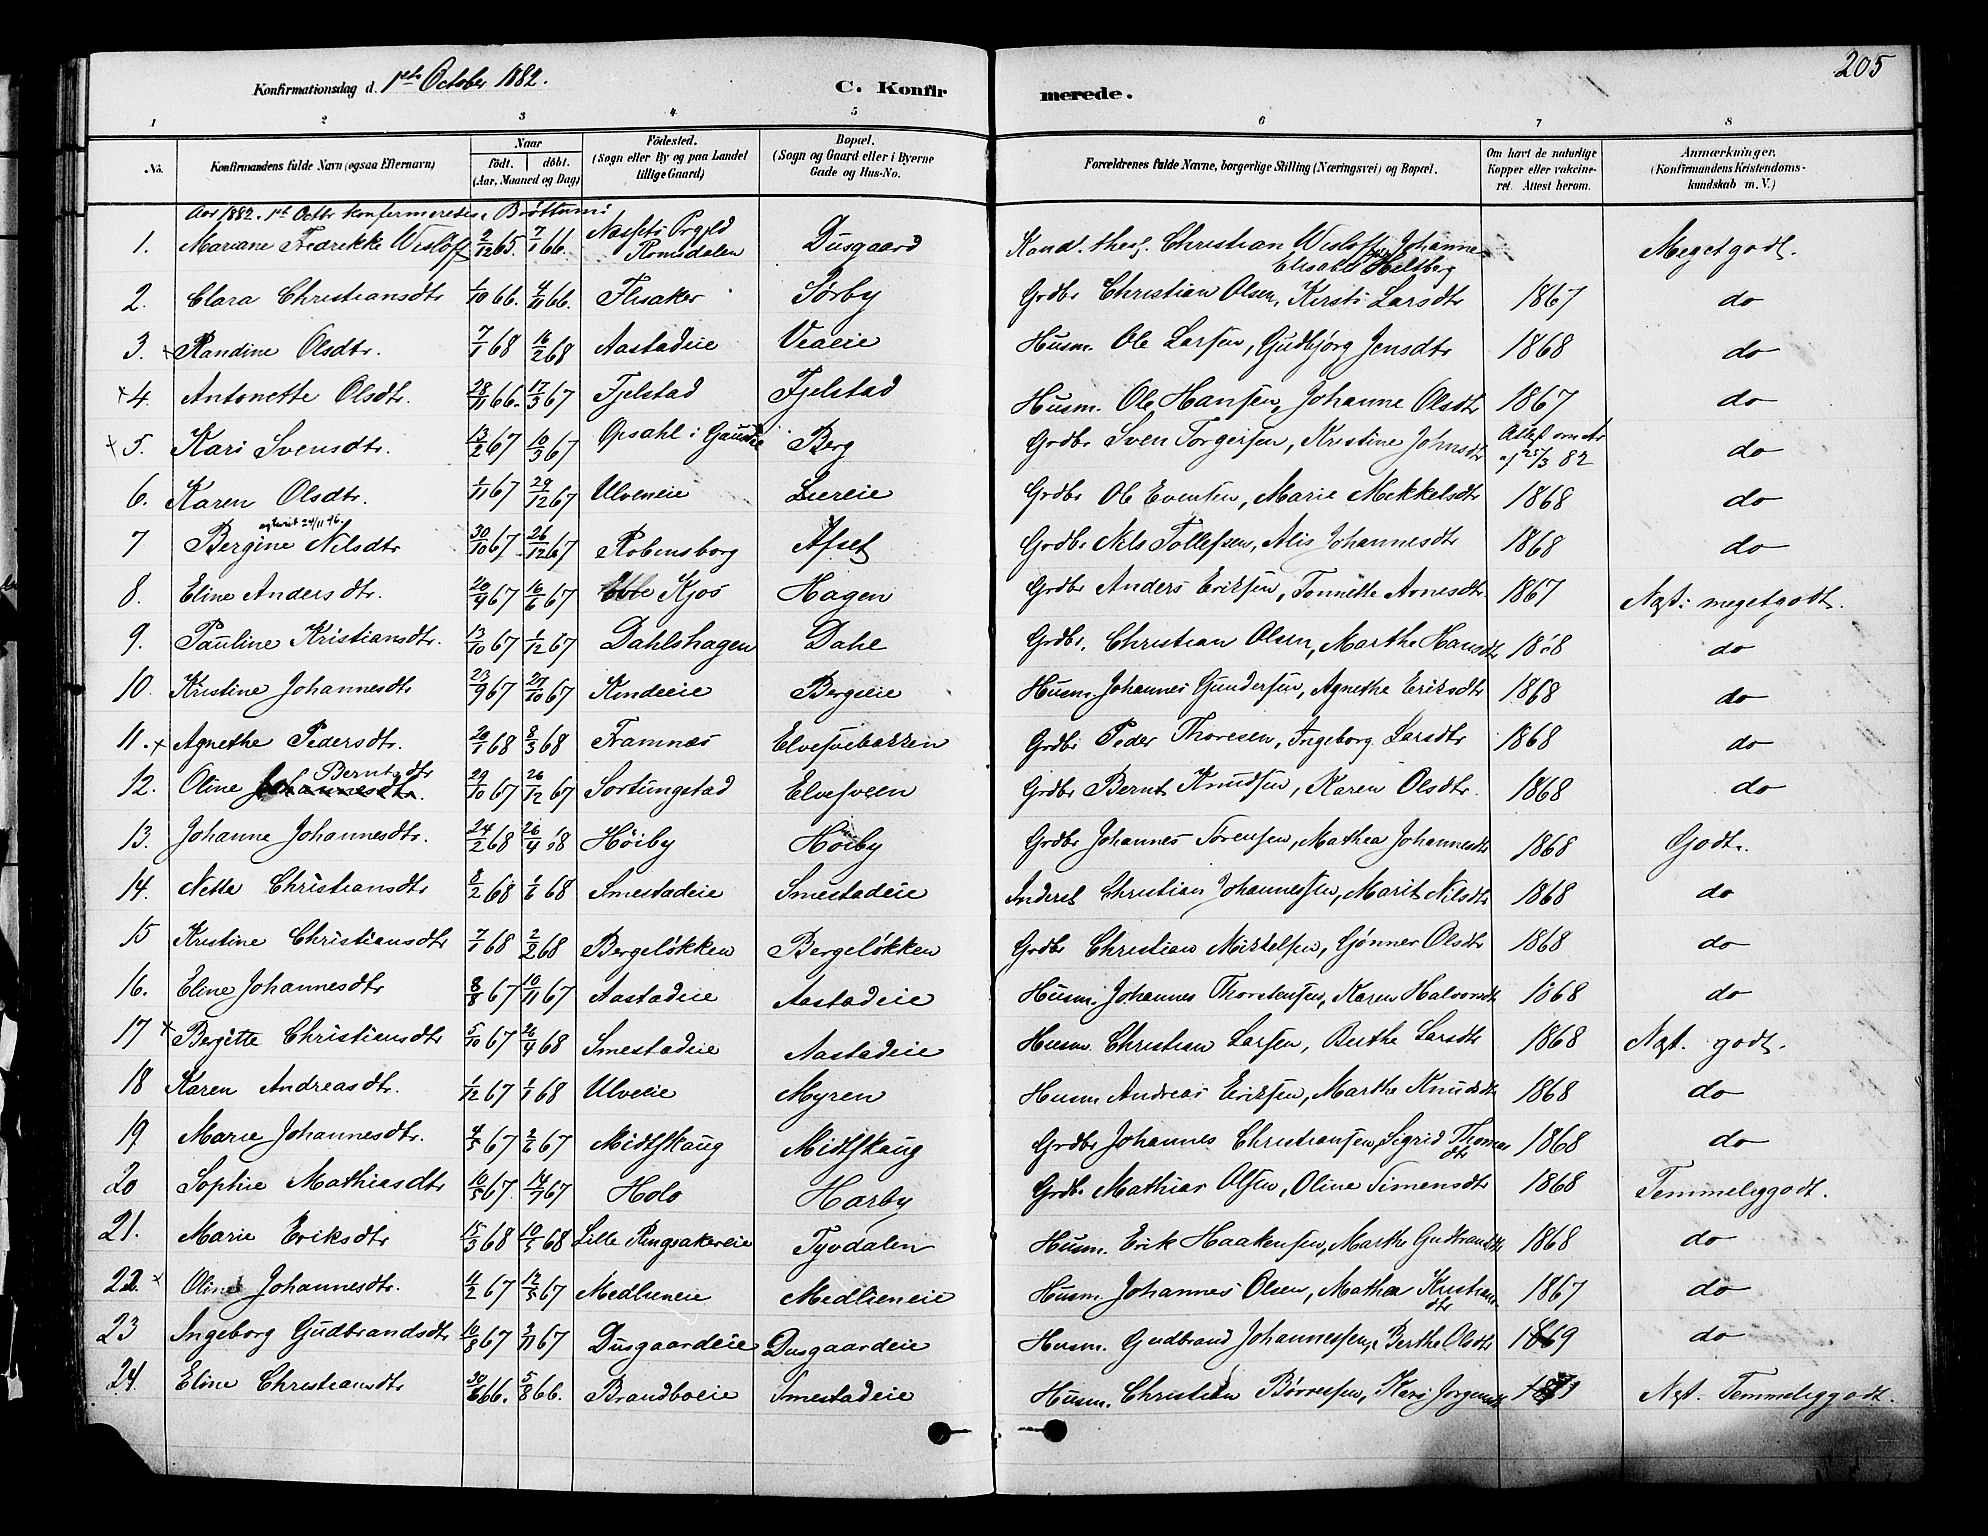 205
Konfirmationsdag d. 1ste October 1882. C. Konfir merede.
1 2 3 4 5 6 7 8
No. Konfirmandens fulde Navn (ogsaa Efternavn) Naar født. døbt. (Aar, Maaned og Dag) Födested. (Sogn eller By og paa Landet tillige Gaard) Bopæl. (Sogn og Gaard eller i Byerne Gade og Hus-No. Forældrenes fulde Navne, borgerlige Stilling (Næringsvei) og Bopæl. Om havt de naturlige Kopper eller vakcineret. Attest herom. Anmærkninger. (Konfirmandens Kristendomskundskab m. V.)
Aar 1882. 1st Octbr konfirmeredes i Brøttum:
1. Mariane Fredrikke Wisløff 2/12 65. 7/1 66. Næssets Prgjld Romsdalen Dusgaard Kand. theol. Christian Wisløff, Johanne Elisabet Heltberg Meget godt.
2. Clara Christiansdtr 1/10 66. 4/11 66. Flisaker Sørby Grdbr Christian Olsen, Kirsti Larsdtr 1867 do
3. × Randine Olsdtr. 7/1 68 16/2 68 Aastadeie Veaeie Husm. Ole Larsen, Gudbjørg Jensdtr 1868 do
× 4. Antonette Olsdtr. 28/11 66. 17/3 67 Fjelstad Fjelstad Husm. Ole Hansen, Johanne Olsdtr 1867 do
× 5. Kari Svensdtr. 13/2 67 10/3 67 Opsahl i Gausdal Berg Grdbr Sven Torgersen, Kristine Johnsdtr Attest 25/3 82 do
6. Karen Olsdtr. 1/11 67 29/12 67 Ulveneie Liereie Grdbr Ole Evensen, Marie Mekkelsdtr 1868 do
7 Bergine Nilsdtr 30/10 67. 26/12 67 Robensborg Afset Grdbr Nils Tollefsen, Alis Johannesdtr 1868 do
8. Eline Andersdtr. 20/4 67 10/6 67 Kjos Hagen Grdbr Anders Eriksen, Tonnette Arnesdtr. 1867 Næst: meget godt.
9. Pauline Kristiansdtr. 13/10 67 1/12 67 Dahlshagen Dahl Grdbr. Christian Olsen, Marthe Hansdtr 1868 do
10. Kristine Johannesdtr 23/9 67 27/10 67 Kindeeie Bergseie Husm. Johannes Gundersen, Agnethe Eriksdtr 1868 do
11. × Agnethe Pedersdtr. 20/1 68 8/3 68 Framnæs Elvesvebakken Grdbr Peder Thoresen, Ingeborg Larsdtr 1868 do
12. Oline Johannesdtr. Berntsdtr 29/10 67 26/12 67 Sortungstad Elvesveen Grdbr Bernt Knudsen, Karen Olsdtr. 1868 do
13. Johanne Johannesdtr. 24/2 68 26/4 68 Høiby Høiby Grdbr Johannes Sørensen, Mathea Johannesdtr 1868 Godt.
14. Nette Christiansdtr 8/2 68 1/6 68 Smestadeie Smestadeie Inderst Christian Johannessen, Marit Nilsdtr 1868 do
15 Kristine Christiansdtr 7/1 68 2/2 68 Bergeløkken Bergeløkken Grdbr Christian Mikkelsen, Gjønner Olsdtr 1868 do
16. Eline Johannesdtr 8/8 67 10/11 67 Aastadeie Aastadeie Husm. Johannes Thorstensen, Karen Halvorsdtr 1868 do
17 × Bergitte Christiansdtr 5/10 67 26/4 68 Smestadeie Aastadeie Husm. Christian Larsen, Berthe Larsdtr 1868 Næst. godt.
18 Karen Andreasdtr. 1/12 67 1/1 68 Ulveeie Myren Husm Andreas Eriksen, Marthe Knudsdtr 1868 do
19 Marie Johannesdtr. 4/5 67 2/6 67 Midtskaug Midtskaug Grdbr Johannes Christiansen, Sigrid Thomasdtr 1868 do
20 Sophie Mathiasdtr 10/5 67. 14/7 67 Holo Harby Grdbr. Mathias Olsen, Oline Simensdtr 1868 Temmelig godt.
21. Marie Eriksdtr 15/3 68 10/5 68 Lille Ringsakereie Tyvdalen Husm. Erik Haakensen, Marthe Gudbrandsdtr 1868 do
22. × Oline Johannesdtr. 11/2 67 12/5 67 Medlieneie Medlieneie Husm Johannes Olsen, Mathea Kristiansdtr 1867 do
23 Ingeborg Gudbrandsdtr 10/8 67 3/11 67 Dusgaardeie Dusgaardeie Husm. Gudbrand Johannessen, Berthe Olsdtr 1869 do
24. Eline Christiansdtr 30/6 66. 5/8 66. Brandboeie Smestadeie Husm. Christian Børresen, Kari Jørgensdtr Næst. Temmelig godt.